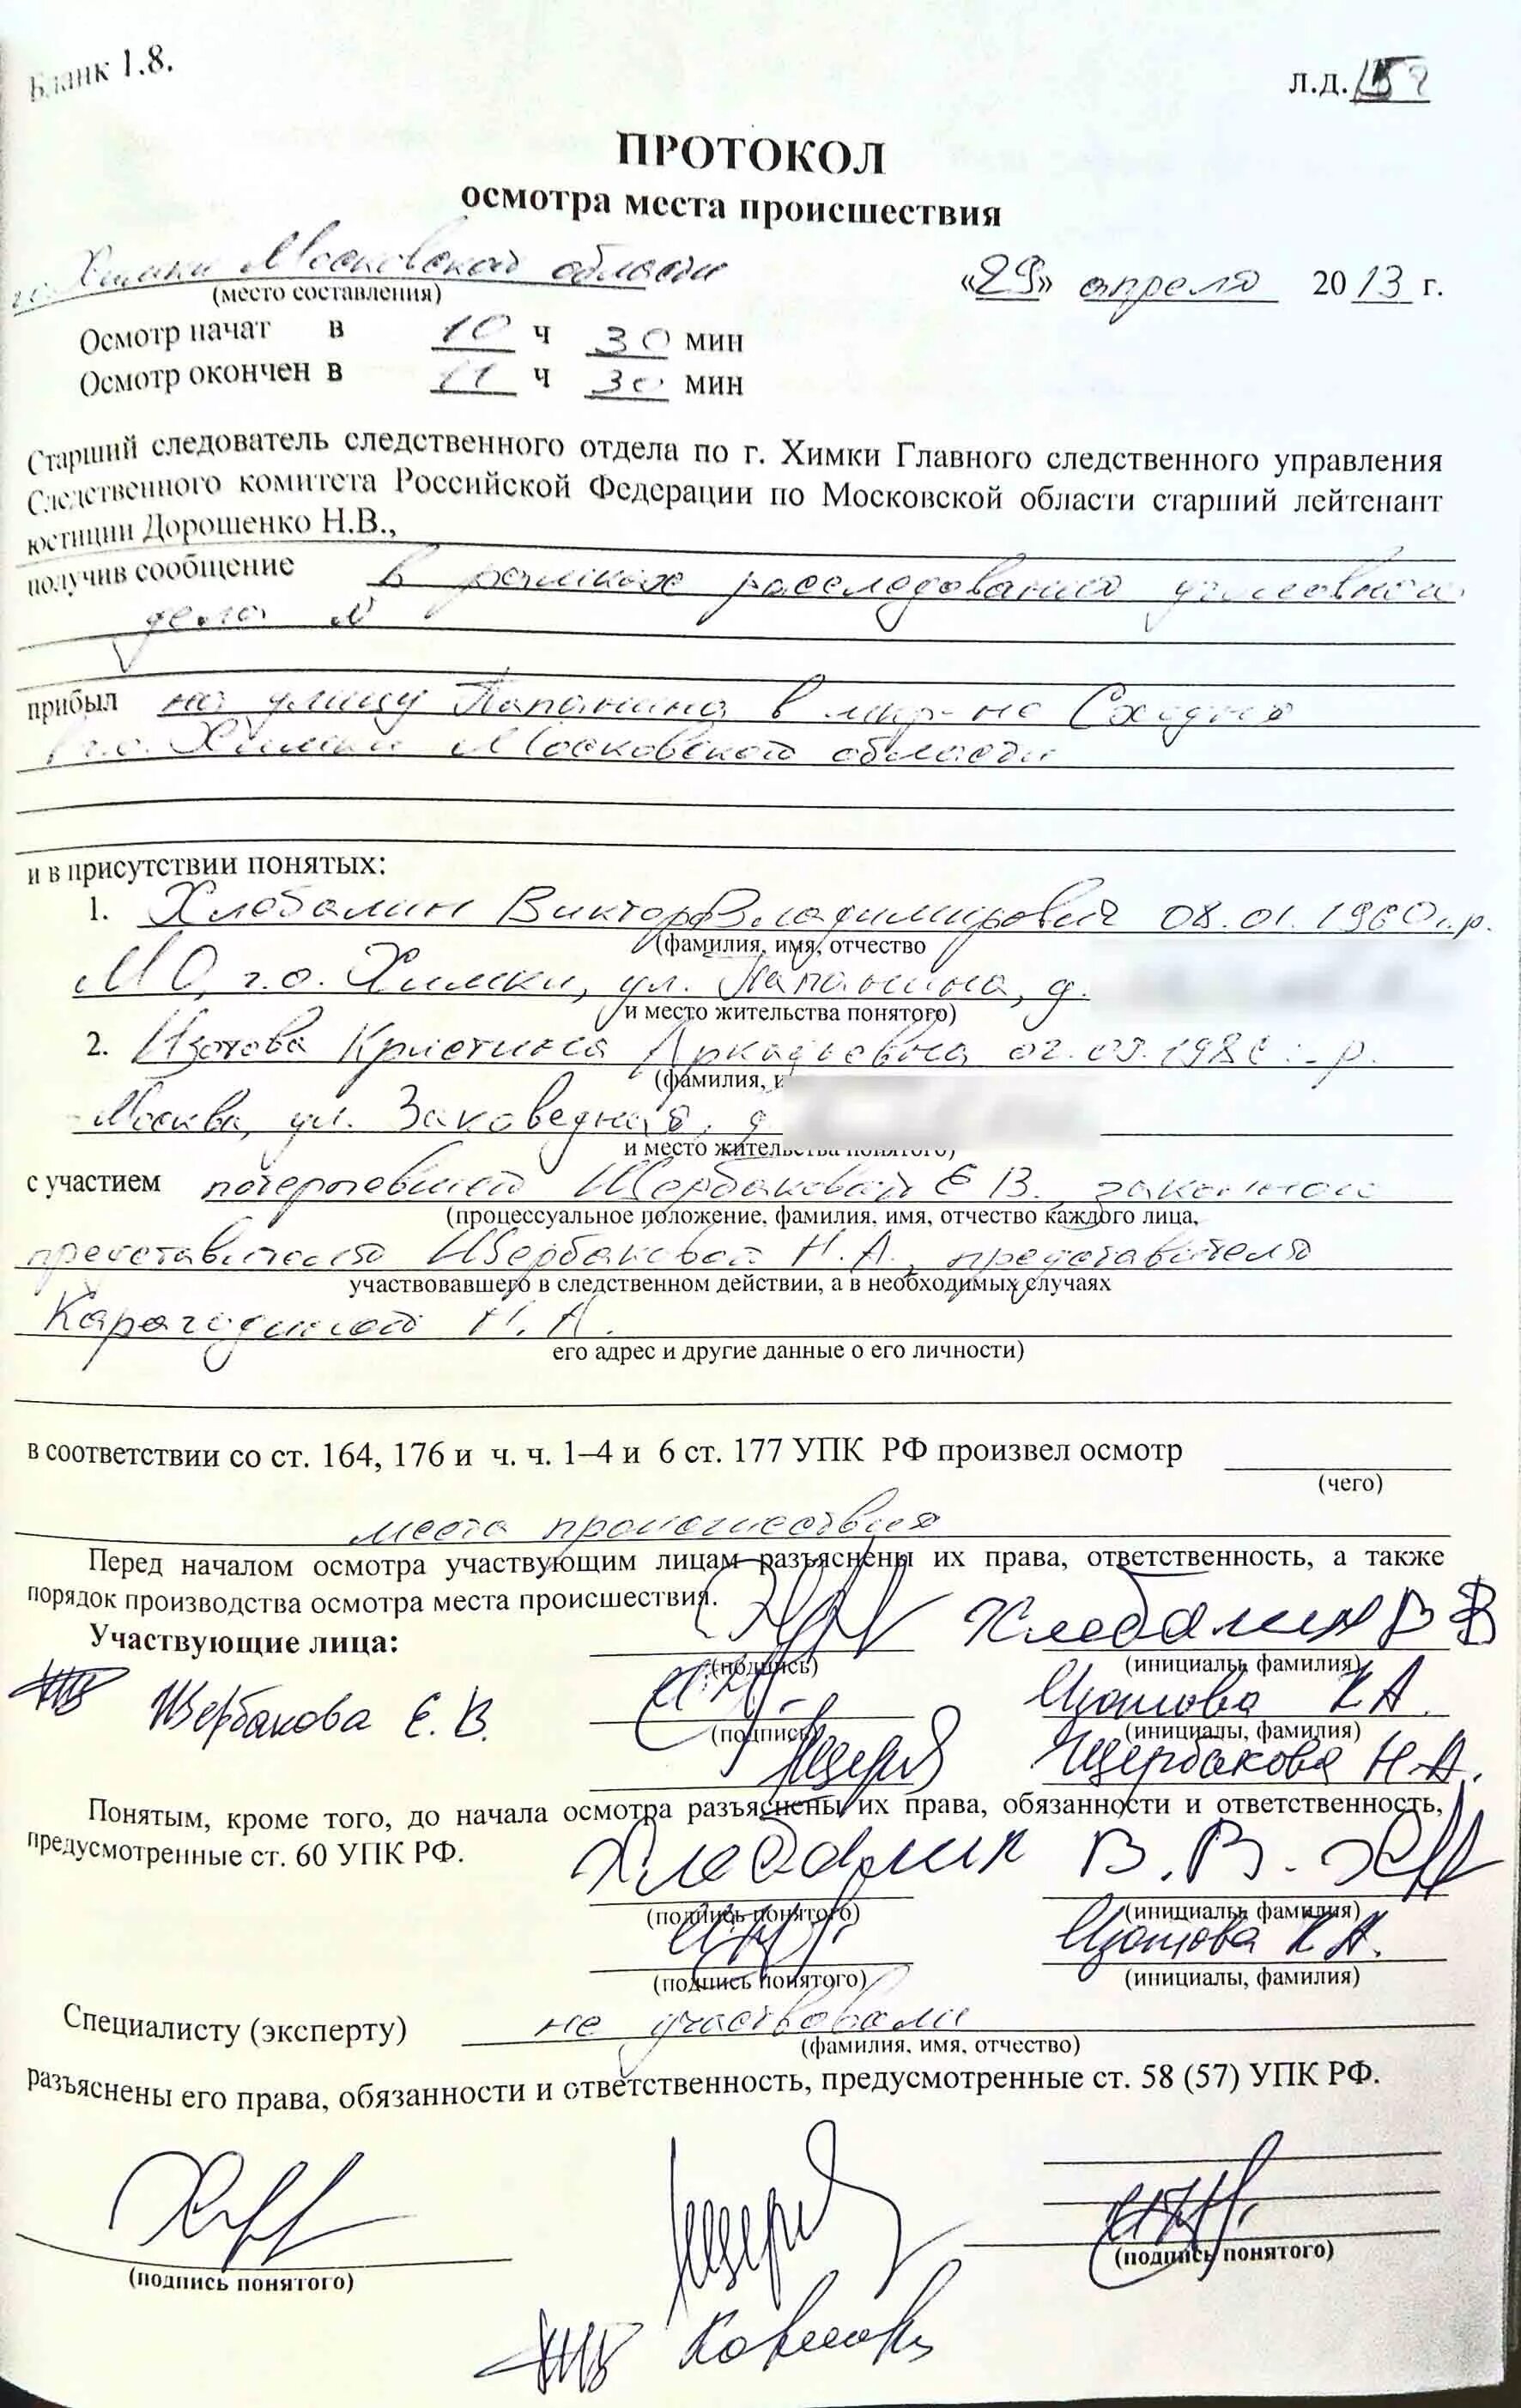 Бланк 1.8.
л.д.
ПРОТОКОЛ
осмотра места происшествия
г. Химки Московской области «29» апреля 2013 г.
(место составления)
Осмотр начат в 10 ч 30 мин
Осмотр окончен в 11 ч 30 мин
Старший следователь следственного отдела по г. Химки Главного следственного управления
Следственного комитета Российской Федерации по Московской области старший лейтенант
юстиции Дорошенко Н.В.,
получив сообщение в рамках расследования уголовного
дела №
прибыл на улицу Папанина в мкр-не Сходня
г.о. Химки Московской области
и в присутствии понятых:
1. Хлебалин Виктор Владимирович 08.01.1960 г.р.
(фамилия, имя, отчество
МО, г.о. Химки, ул. Папанина, д.
и место жительства понятого)
2. Изотова Кристина Аркадьевна г.р.
(фамилия,
Москва, ул. д.
и место жительства понятого)
с участием потерпевшей Щербаковой Е.В., законного
(процессуальное положение, фамилия, имя, отчество каждого лица,
представителя Щербаковой Н.А., представителя
участвовавшего в следственном действии, а в необходимых случаях
Н.А.
его адрес и другие данные о его личности)
в соответствии со ст. 164, 176 и ч. ч. 1–4 и 6 ст. 177 УПК РФ произвел осмотр
(чего)
места происшествия
Перед началом осмотра участвующим лицам разъяснены их права, ответственность, а также
порядок производства осмотра места происшествия.
Участвующие лица: Хлебалин В В
(подпись) (инициалы, фамилия)
Щербакова Е. В. Изотова К А.
(подпись) (инициалы, фамилия)
Щербакова Н.А.
Понятым, кроме того, до начала осмотра разъяснены их права, обязанности и ответственность,
предусмотренные ст. 60 УПК РФ.
Хлебалин В.В.
(подпись понятого) (инициалы, фамилия)
Изотова К.А.
(подпись понятого) (инициалы, фамилия)
Специалисту (эксперту) не участвовали
(фамилия, имя, отчество)
разъяснены его права, обязанности и ответственность, предусмотренные ст. 58 (57) УПК РФ.
(подпись понятого) (подпись понятого)